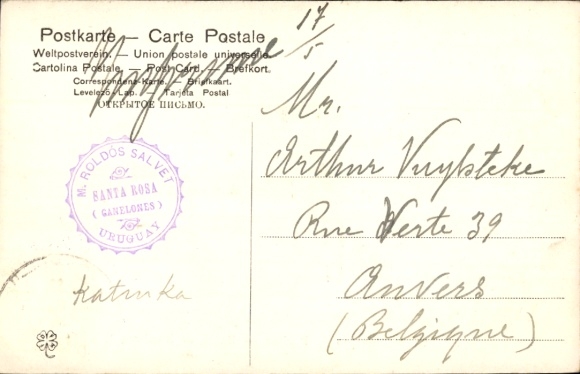 Postkarte — Carte Postale
Weltpostverein. — Union postale universelle
Cartolina Postale. — Post Card. — Brefkort.
Correspondenz-Karte. — Briefkaart.
Levelező-Lap. — Tarjeta Postal
ОТКРЫТОЕ ПИСЬМО.
17/5
M. ROLDÓS SALVET
SANTA ROSA
(CANELONES)
URUGUAY
Katinka
Mr.
Arthur Vuylsteke
Rue Verte 39
Anvers
(Belgique)